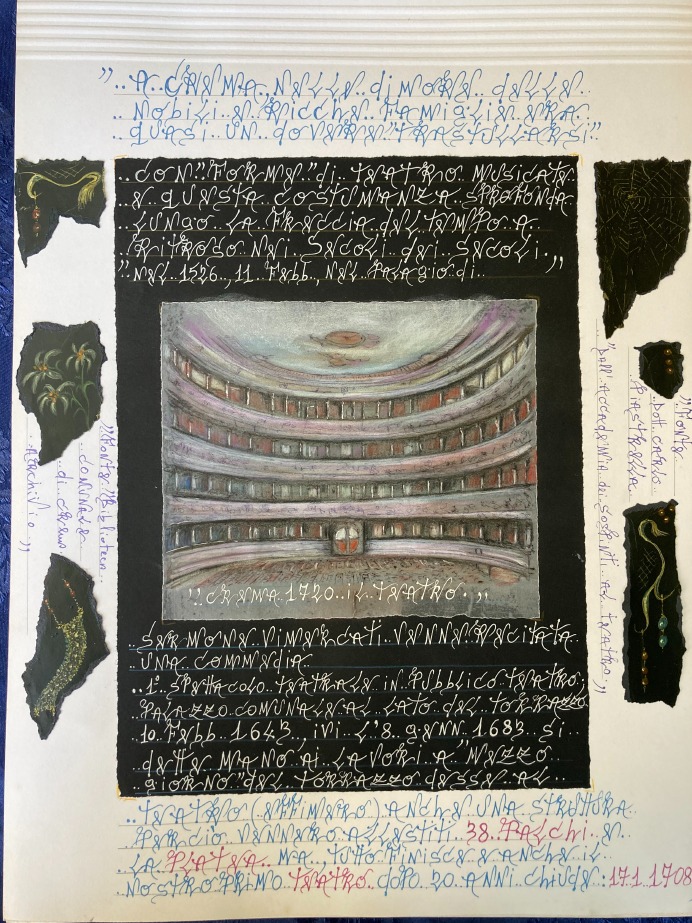 "..A CREMA, NELLE.. dimORE.. dELLE..
NObiLi.. E.. RiCCHE.. FAMiGLiE.. ERA..
quASi.. UN.. dOVERE.. "TRASTULLARSi"..
..CON.. "FORME".. di.. TEATRO.. MUSiCATE
E.. quESTA.. COSTUMANZA.. SPROFONdA
LUNGO.. LA.. FRECCiA.. dEL TEMPO.. A..
RiTROSO.. NEi.. SECOLi.. dEi.. SECOLi..,,
"NEL.. 1526.., 11.. FEbb.., NEL.. PALAGiO di..
"CREMA.. 1720.. iL TEATRO..,,
SER.. MONE.. ViMERCATi.. VENNE.. RECiTATA..
UNA.. COMMEdiA..
..1°.. SPETTACOLO.. TEATRALE iN.. PUbbLiCO TEATRO:,
PALAZZO COMUNALE AL.. LATO.. dEL.. TORRAZZO
10.. FEbb.. 1643.., iVi.. L'8.. gENN.. 1683.. Si..
..dETTE.. MANO.. Ai.. LAVORi.. A.. MEZZO..
giORNO".. dEL.. TORRAZZO.. dESSE.. AL..
..TEATRO.. (EFFiMERO).. ANCHE.. UNA.. STRUTTURA..
PERCiÒ.. VENNERO.. ALLESTiTi.. 38.. PALChi.. E..
LA.. PLATEA.. MA.., TUTTO FiNiSCE.. E.. ANChE.. iL..
NOSTRO.. PRiMO.. TEATRO.. dOPO.. 20.. ANNi.. ChiUdE..: 17.1.1708
"FONTE.. "BibLiOTECA..
..COMUNALE..
..di.. CREMA..
..ARChiViO..,,
"FONTE..
..dOTT. CARLO..
PiASTRELLA..
"dALL'ACCAdEMiA.. dEi.. SOSPiNTi.. AL.. TEATRO..,,